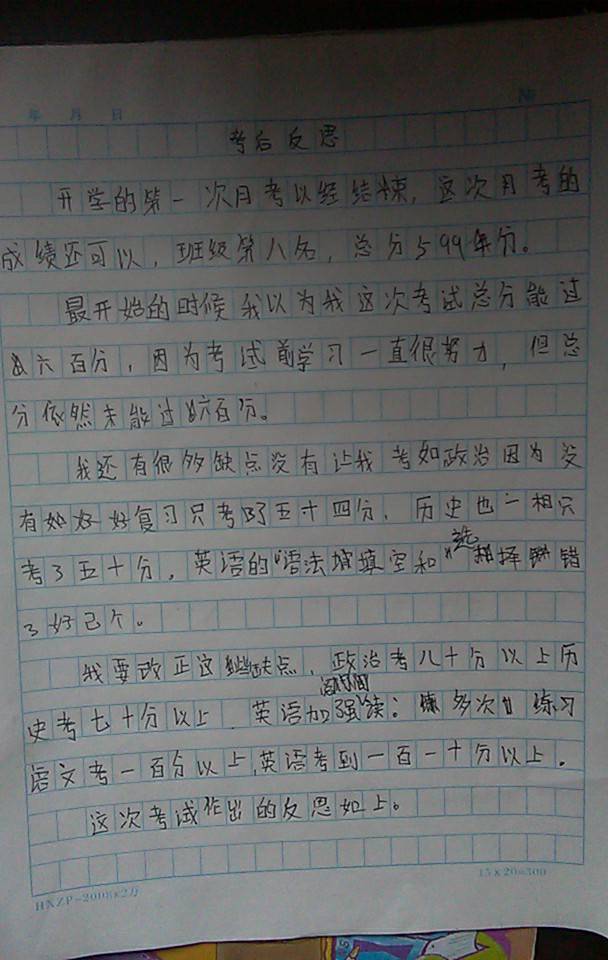 年 月 日
考后反思
开学的第一次月考以经结束,这次月考的
成绩还可以,班级第八名,总分599年分。
最开始的时候我以为我这次考试总分能过
六百分,因为考试前学习一直很努力,但总
分依然未能过六百分。
我还有很多缺点没有让我考如政治因为没
有好好复习只考了五十四分,历史也一相只
考了五十分,英语的"语法填空和"选择错
了好己个。
我要改正这些缺点,政治考八十分以上历
史考七十分以上,英语加强阅读:多次练习
语文考一百分以上,英语考到一百一十分以上。
这次考试作出的反思如上。
HNZP-2008×2万
15×20=300